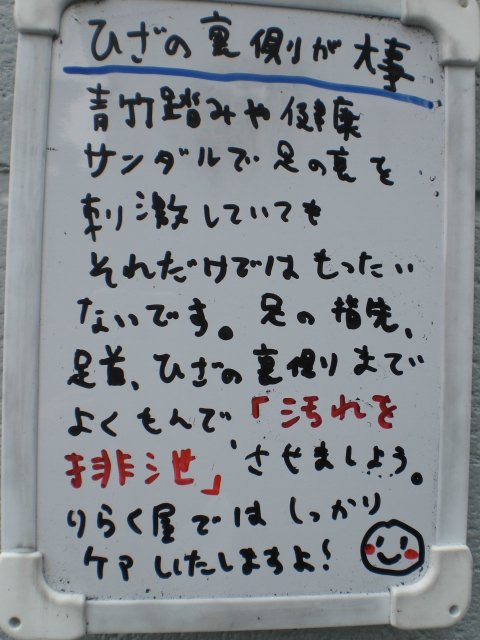 ひざの裏側が大事
青竹踏みや健康
サンダルで足の裏を
刺激していても
それだけではもったい
ないです。足の指先、
足首、ひざの裏側まで
よくもんで、「汚れを
排泄」させましょう。
りらく屋ではしっかり
ケアいたしますよ!